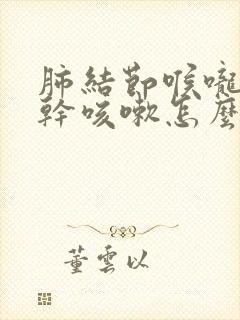 肺結節喉嚨
幹咳嗽怎麼
董雲以